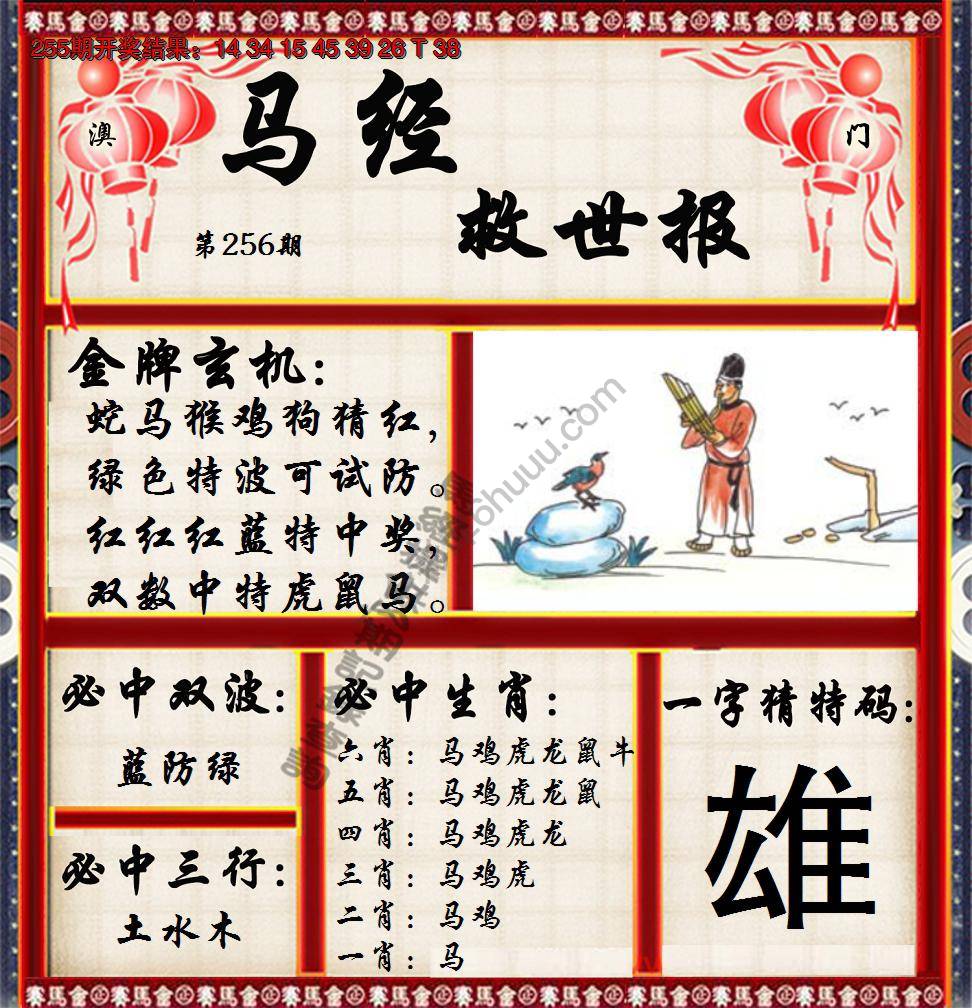 255期开奖结果：14 34 15 45 39 26 T 38
澳
门
马经
救世报
第256期
金牌玄机：
蛇马猴鸡狗猜红，
绿色特波可试防。
红红红蓝特中奖，
双数中特虎鼠马。
必中双波：
蓝防绿
必中三行：
土水木
必中生肖：
六肖：马鸡虎龙鼠牛
五肖：马鸡虎龙鼠
四肖：马鸡虎龙
三肖：马鸡虎
二肖：马鸡
一肖：马
一字猜特码：
雄